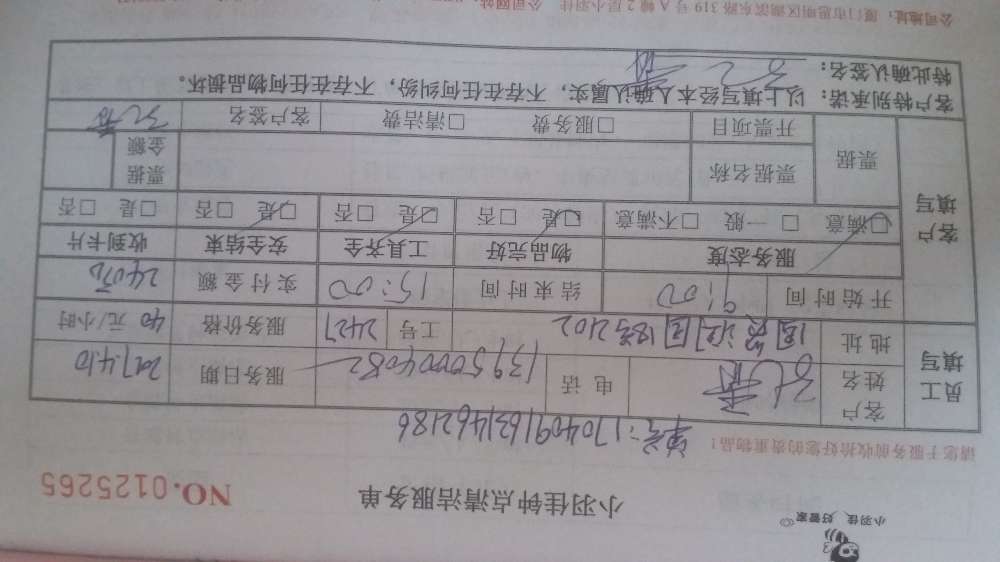 小羽佳 好管家
小羽佳钟点清洁服务单
NO.0125265
请您于服务前收拾好您的贵重物品!
单号:1704091631462186
员工填写
客户姓名
电话 13950004082
服务日期 2017.4.10
地址
2402
工号 2427
服务价格 40 元/小时
开始时间 9:00
结束时间 15:00
实付金额 240元
客户填写
服务态度 物品完好 工具齐全 安全结束 收到卡片
☑满意 □一般 □不满意 ☑是 □否 ☑是 □否 ☑是 □否 □是 □否
票据
票据名称
票据金额
开票项目 □服务费 □清洁费
客户签名
客户特别承诺:以上填写经本人确认属实,不存在任何纠纷,不存在任何物品损坏。
特此确认签名:
公司地址:厦门市思明区湖滨东路 319 号 A 幢 2 层小羽佳
公司网站: